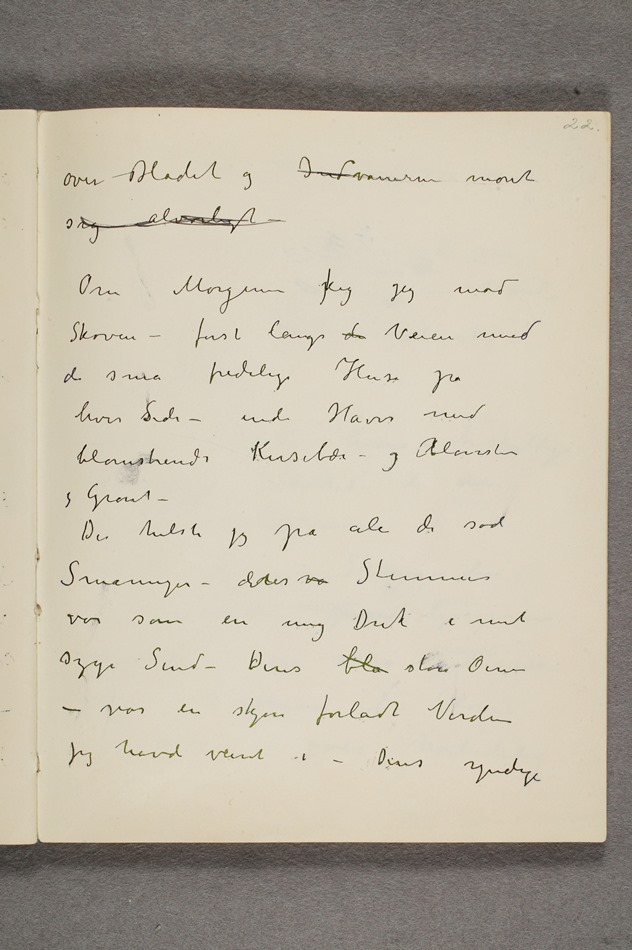 22.
over Bladet og Indvaanerne moret
sig alvorligt –
Om Morgenen gik jeg mod
Skoven – først langs de Veien med
de små fredelige Huse på
hver Side – inde Haver med
blomstrende Kirsebær – og Blomster
og Grønt –
Der hilste jeg på alle de sød
Småunger – deres va Stemmer
var som en ung Drik i mit
syge Sind – Deres blå store Øine
– var en skjøn forladt Verden
jeg havd været i – Deres yndige